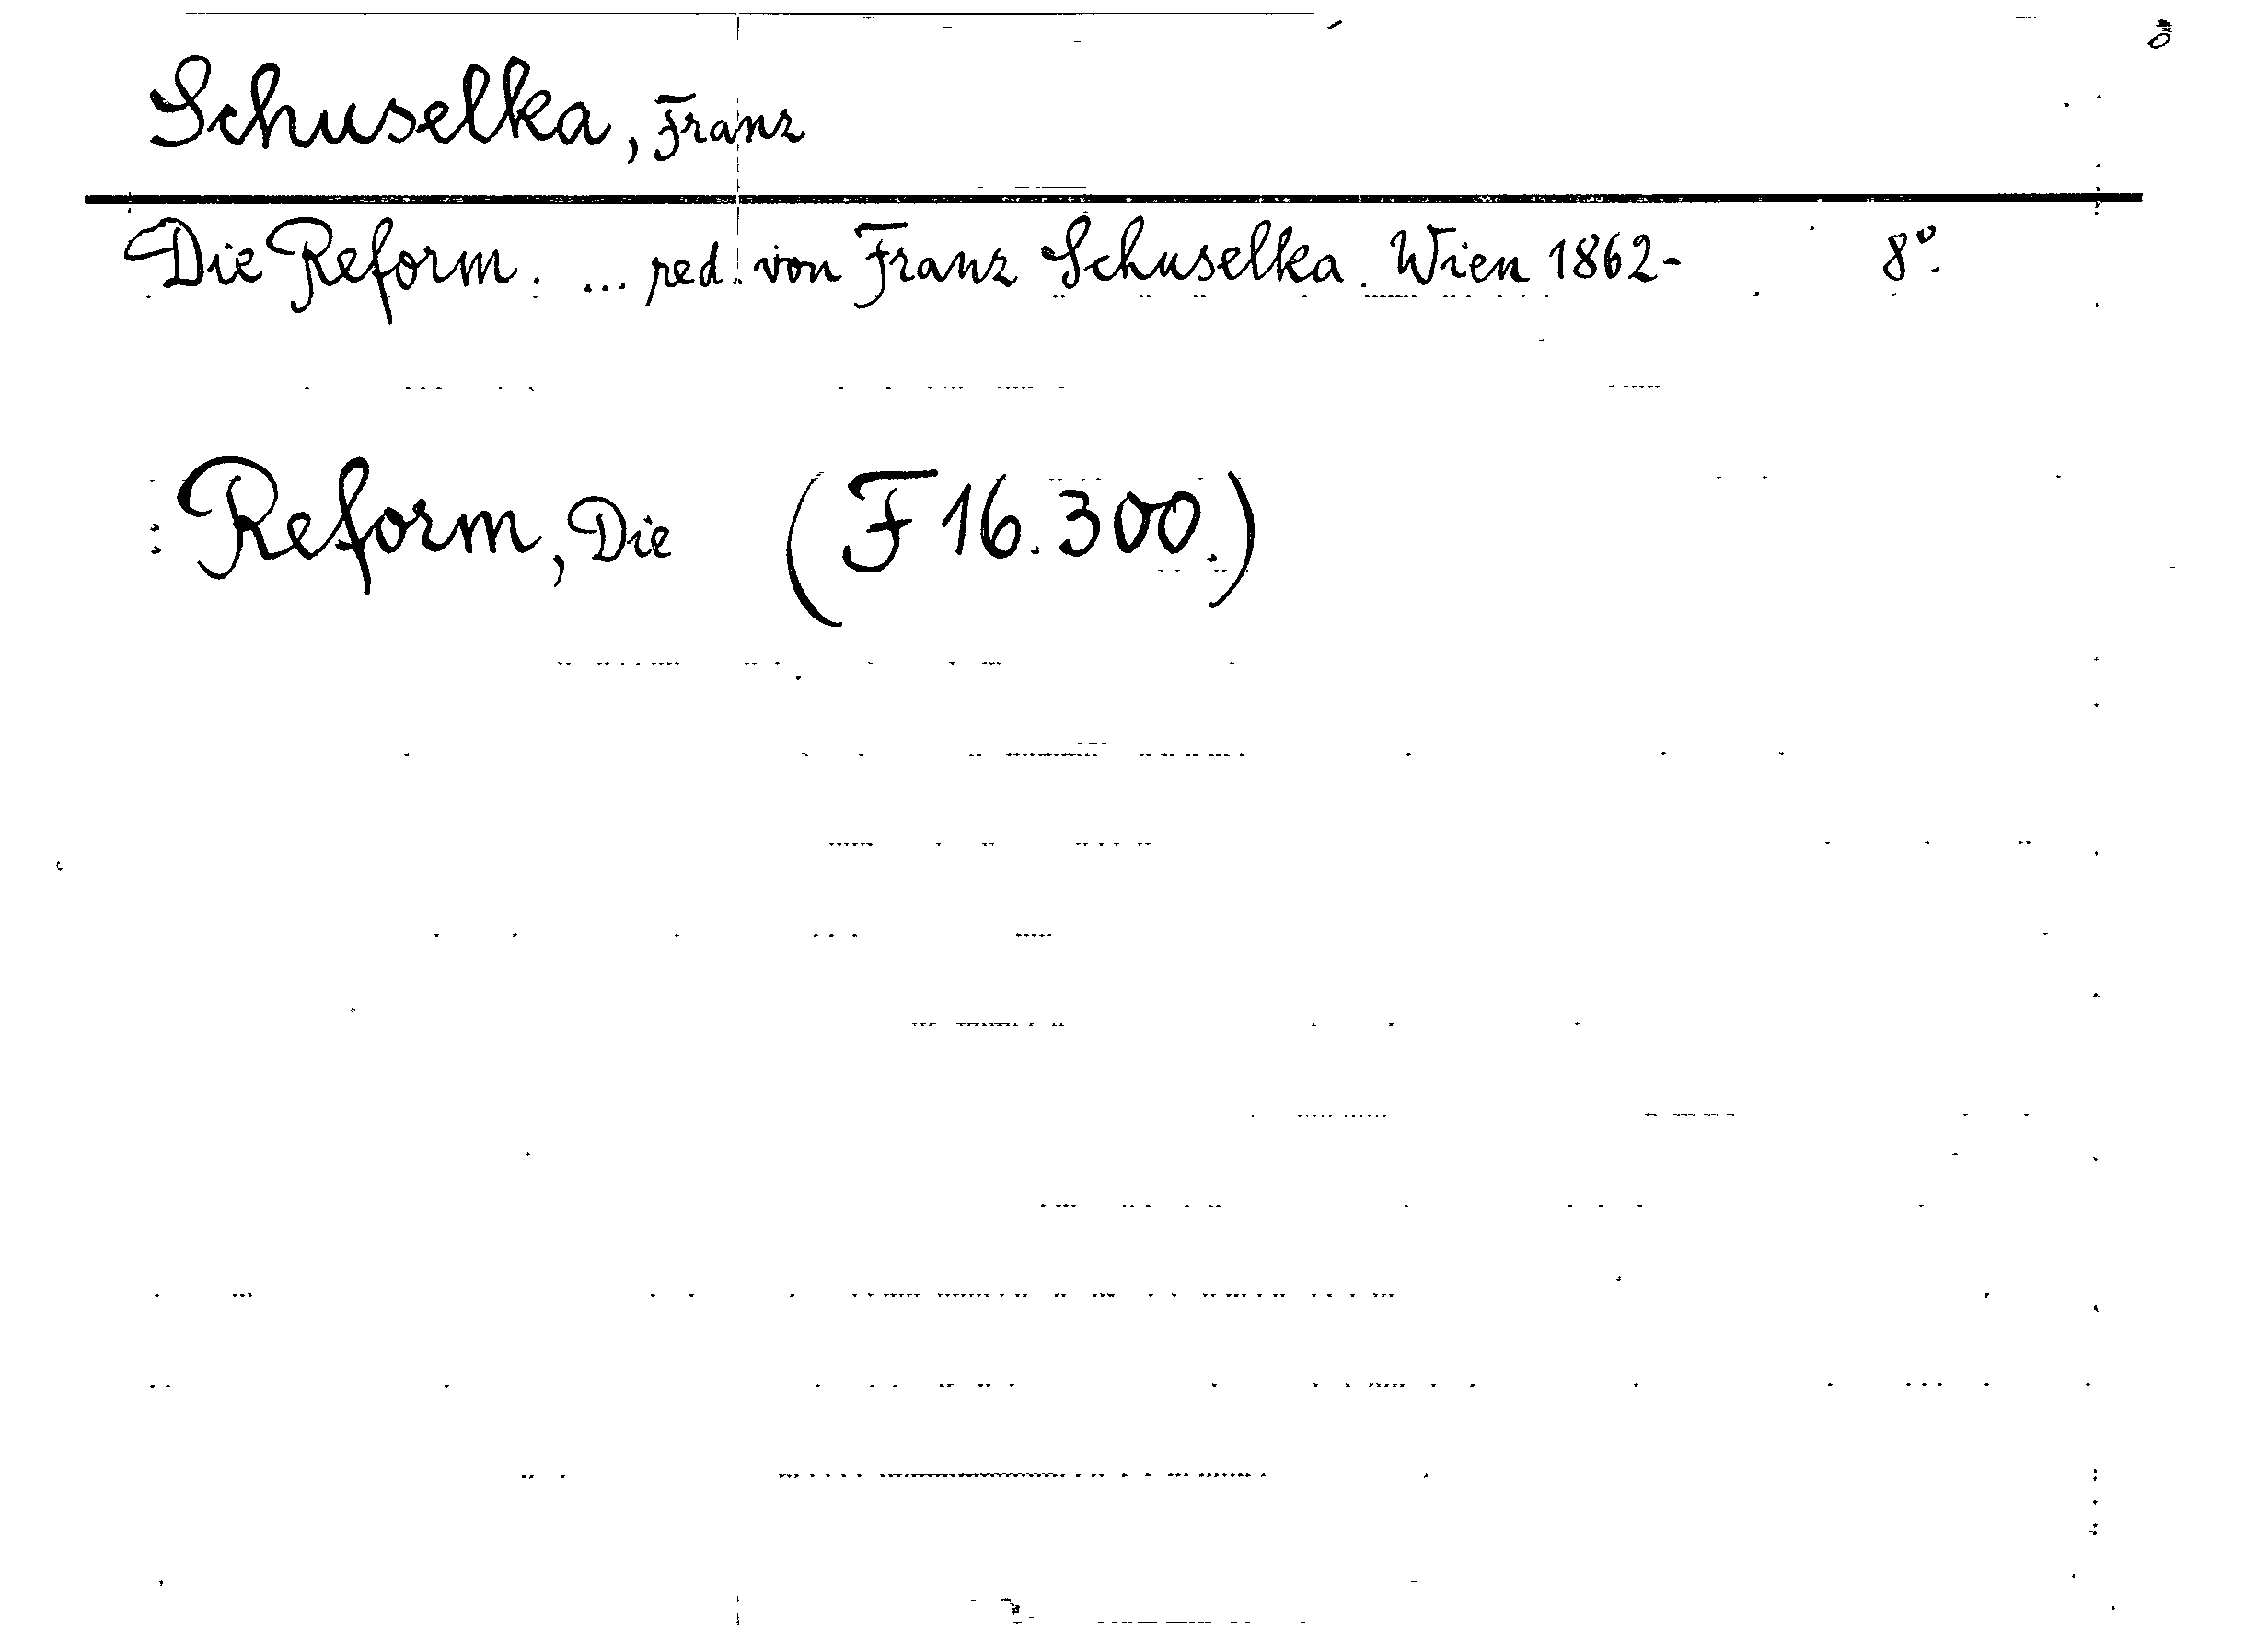 Schuselka, Franz
Die Reform. ... red. von Franz Schuselka. Wien 1862- 8°.
Reform, Die (F 16.300.)